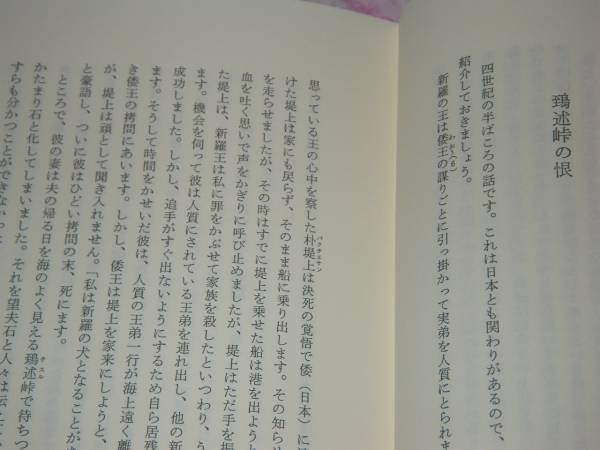 鵄述峠の恨
四世紀の半ばころの話です。これは日本とも関わりがあるので、
紹介しておきましょう。
新羅の王は倭王の謀りごとに引っ掛かって実弟を人質にとられま
わおう(6)
思っている王の心中を察した朴堤上は決死の覚悟で倭(日本)に
パクチェサン
けた堤上は家にも戻らず、そのまま船に乗り出します。その知らせ
を走らせましたが、その時はすでに堤上を乗せた船は港を出ようと
血を吐く思いで声をかぎりに呼び止めましたが、堤上はただ手を振
た堤上は、新羅王は私に罪をかぶせて家族を殺したといつわり、う
ます。機会を伺って彼は人質にされている王弟を連れ出し、他の新
成功しました。しかし、追手がすぐ出ないようにするため自ら居残
ます。そうして時間をかせいだ彼は、人質の王弟一行が海上遠く離
き倭王の拷問にあいます。しかし、倭王は堤上を家来にしようと、
が、堤上は頑として聞き入れません。「私は新羅の犬となることが
と豪語し、ついに彼はひどい拷問の末、死にます。
ところで、彼の妻は夫の帰る日を海のよく見える鵄述峠で待ちつ
チスル
かたまり石と化してしまいました。それを望夫石と人々は伝え
すらも分かつことができなかっ